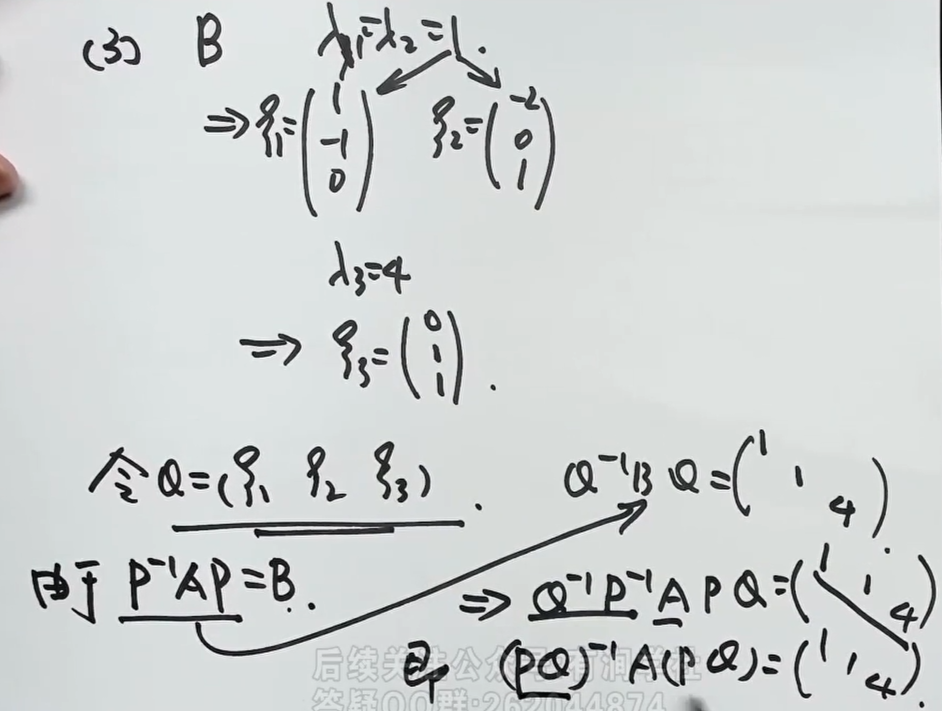 (3) B λ₁=λ₂=1.
⇒ ξ₁=(1 -1 0) ξ₂=(-2 0 1)
λ₃=4
⇒ ξ₃=(0 1 1).
令 Q=(ξ₁ ξ₂ ξ₃). Q⁻¹BQ=(1 1 4).
由于 P⁻¹AP=B. ⇒ Q⁻¹P⁻¹APQ=(1 1 4)
即 (PQ)⁻¹A(PQ)=(1 1 4).
后续关注公众号
答疑QQ群:262044874